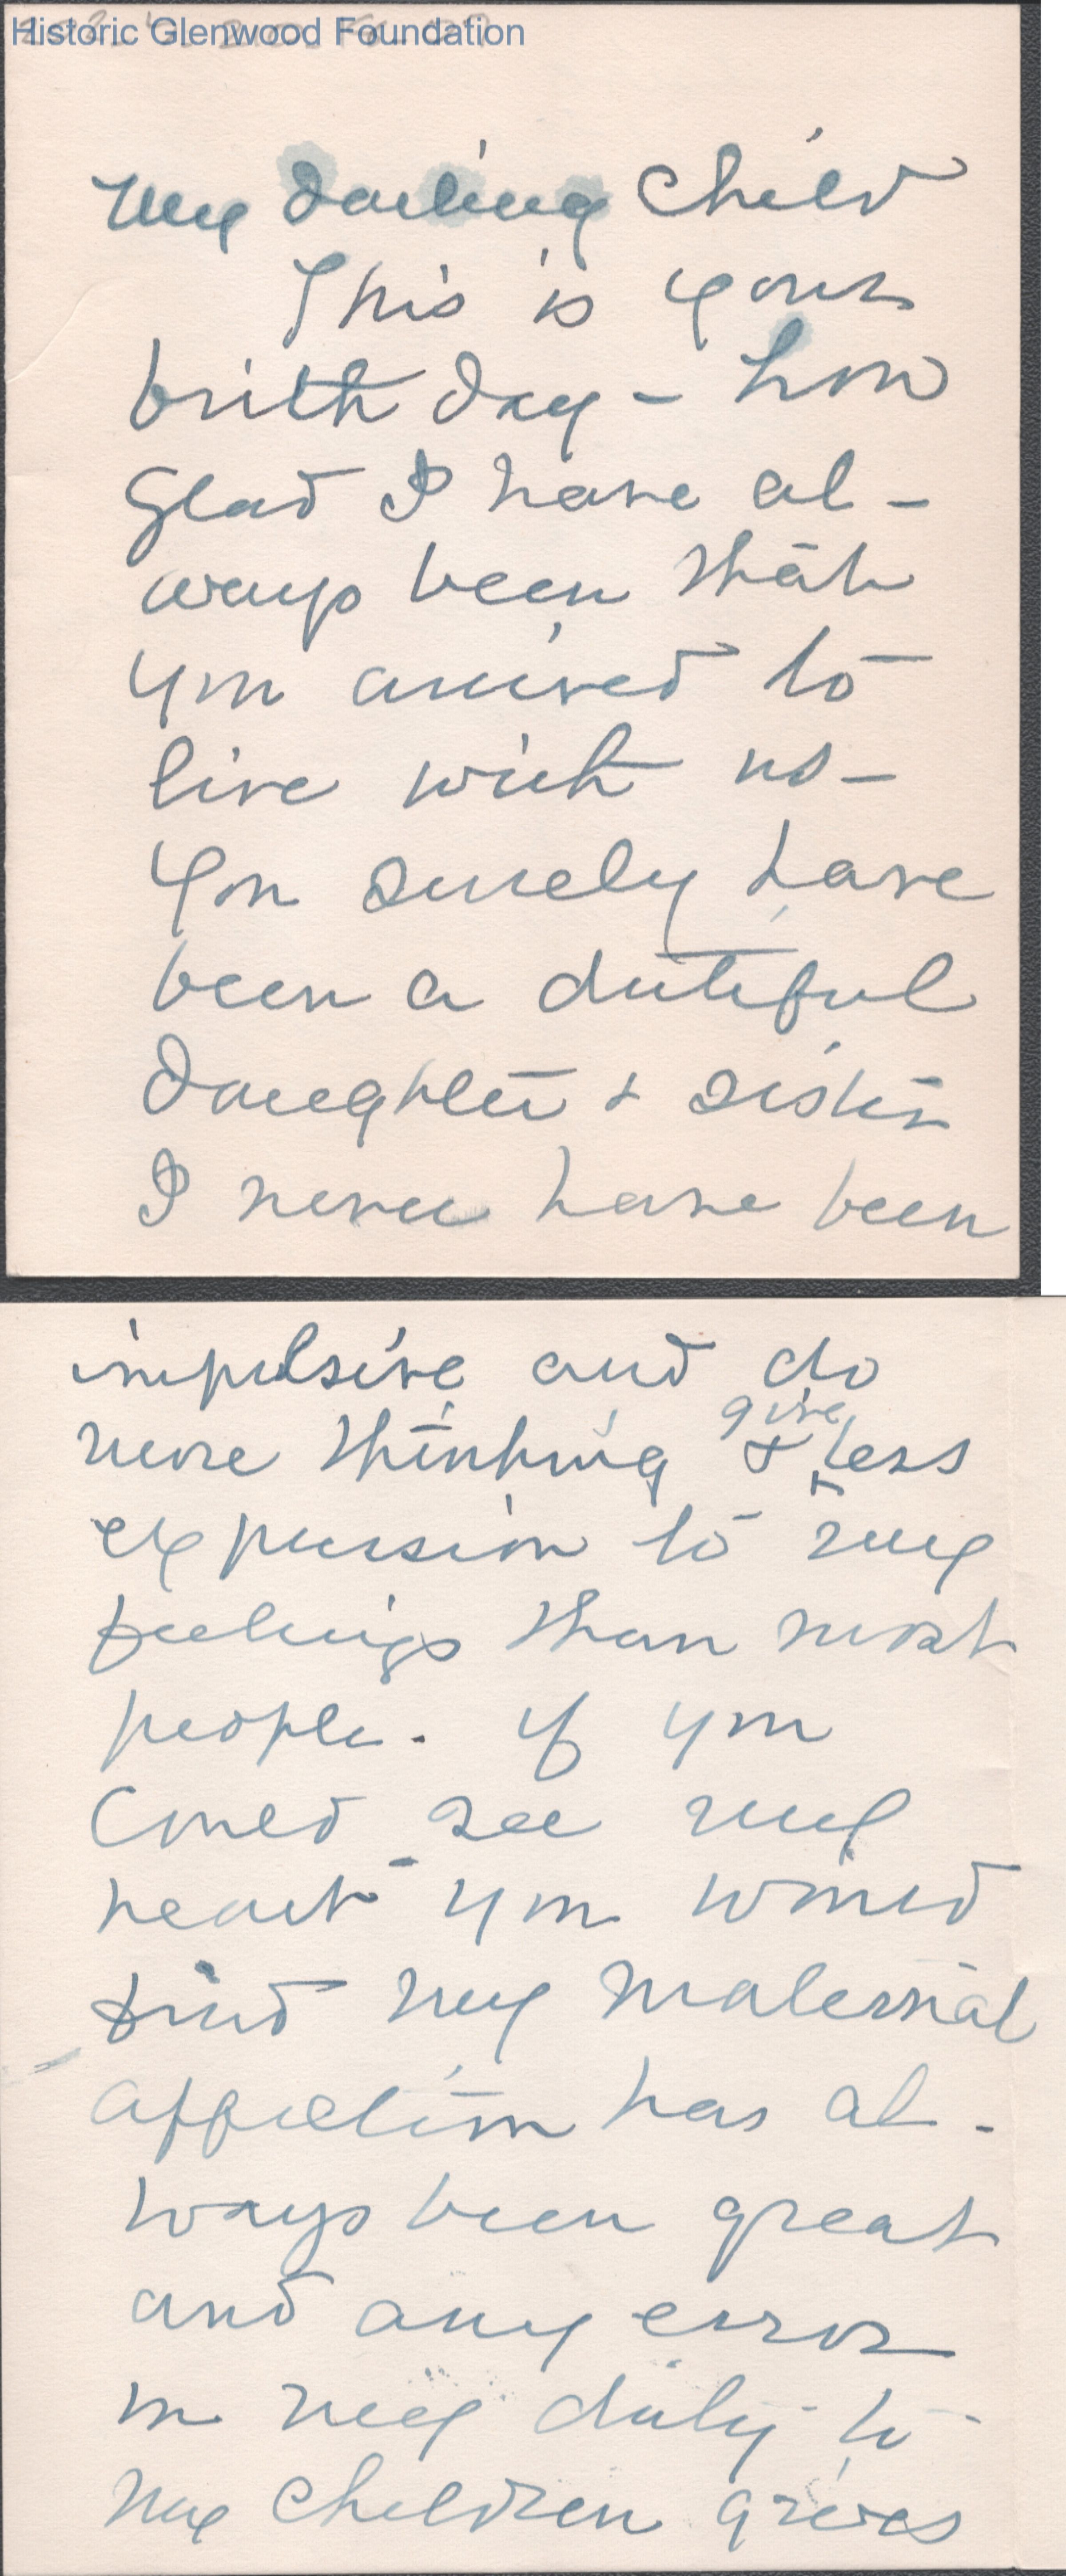 Historic Glenwood Foundation
My darling Child
This is your
birthday - how
glad I have al -
ways been that
you arrived to
live with us -
You surely have
been a dutiful
daughter & sister
I never have been
impulsive and do
give
more thinking & less
expression to my
feelings than most
people. if you
could see my
heart you would
find my maternal
affection has al -
ways been great
and any error
in my duty to
my children grieves